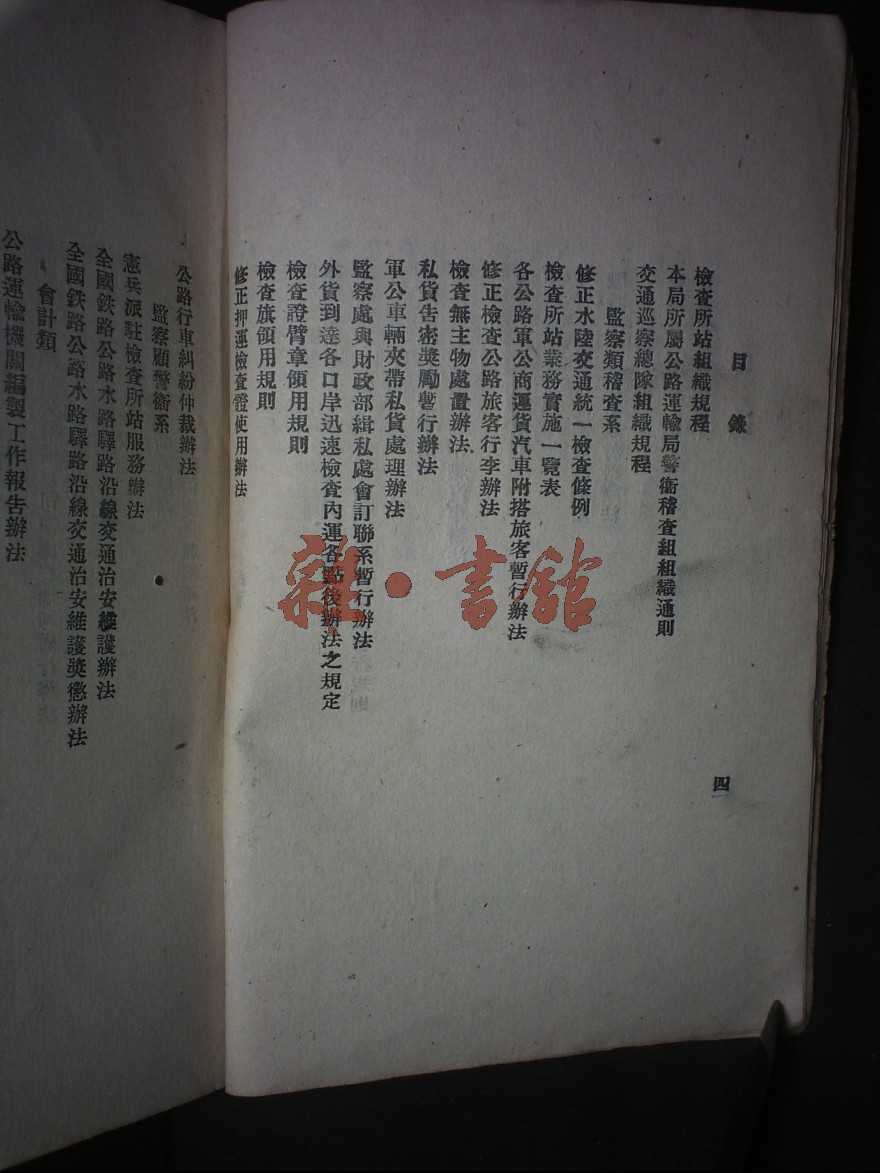 目錄
四
檢查所站組織規程
本局所屬公路運輸局警衞稽查組組織通則
交通巡察總隊組織規程
監察類稽查系
修正水陸交通統一檢查條例
檢查所站業務實施一覽表
各公路軍公商運貨汽車附搭旅客暫行辦法
修正檢查公路旅客行李辦法
檢查無主物處置辦法
私貨告密獎勵暫行辦法
軍公車輛夾帶私貨處理辦法
監察處與財政部緝私處會訂聯系暫行辦法
外貨到達各口岸迅速檢查內運各點後辦法之規定
檢查證臂章領用規則
檢查旗領用規則
修正押運檢查證使用辦法
公路行車糾紛仲裁辦法
監察顧警衞系
憲兵派駐檢查所站服務辦法
全國鉄路公路水路驛路沿線交通治安維護辦法
全國鉄路公路水路驛路沿線交通治安維護獎懲辦法
會計類
公路運輸機關編製工作報告辦法
雜·書館